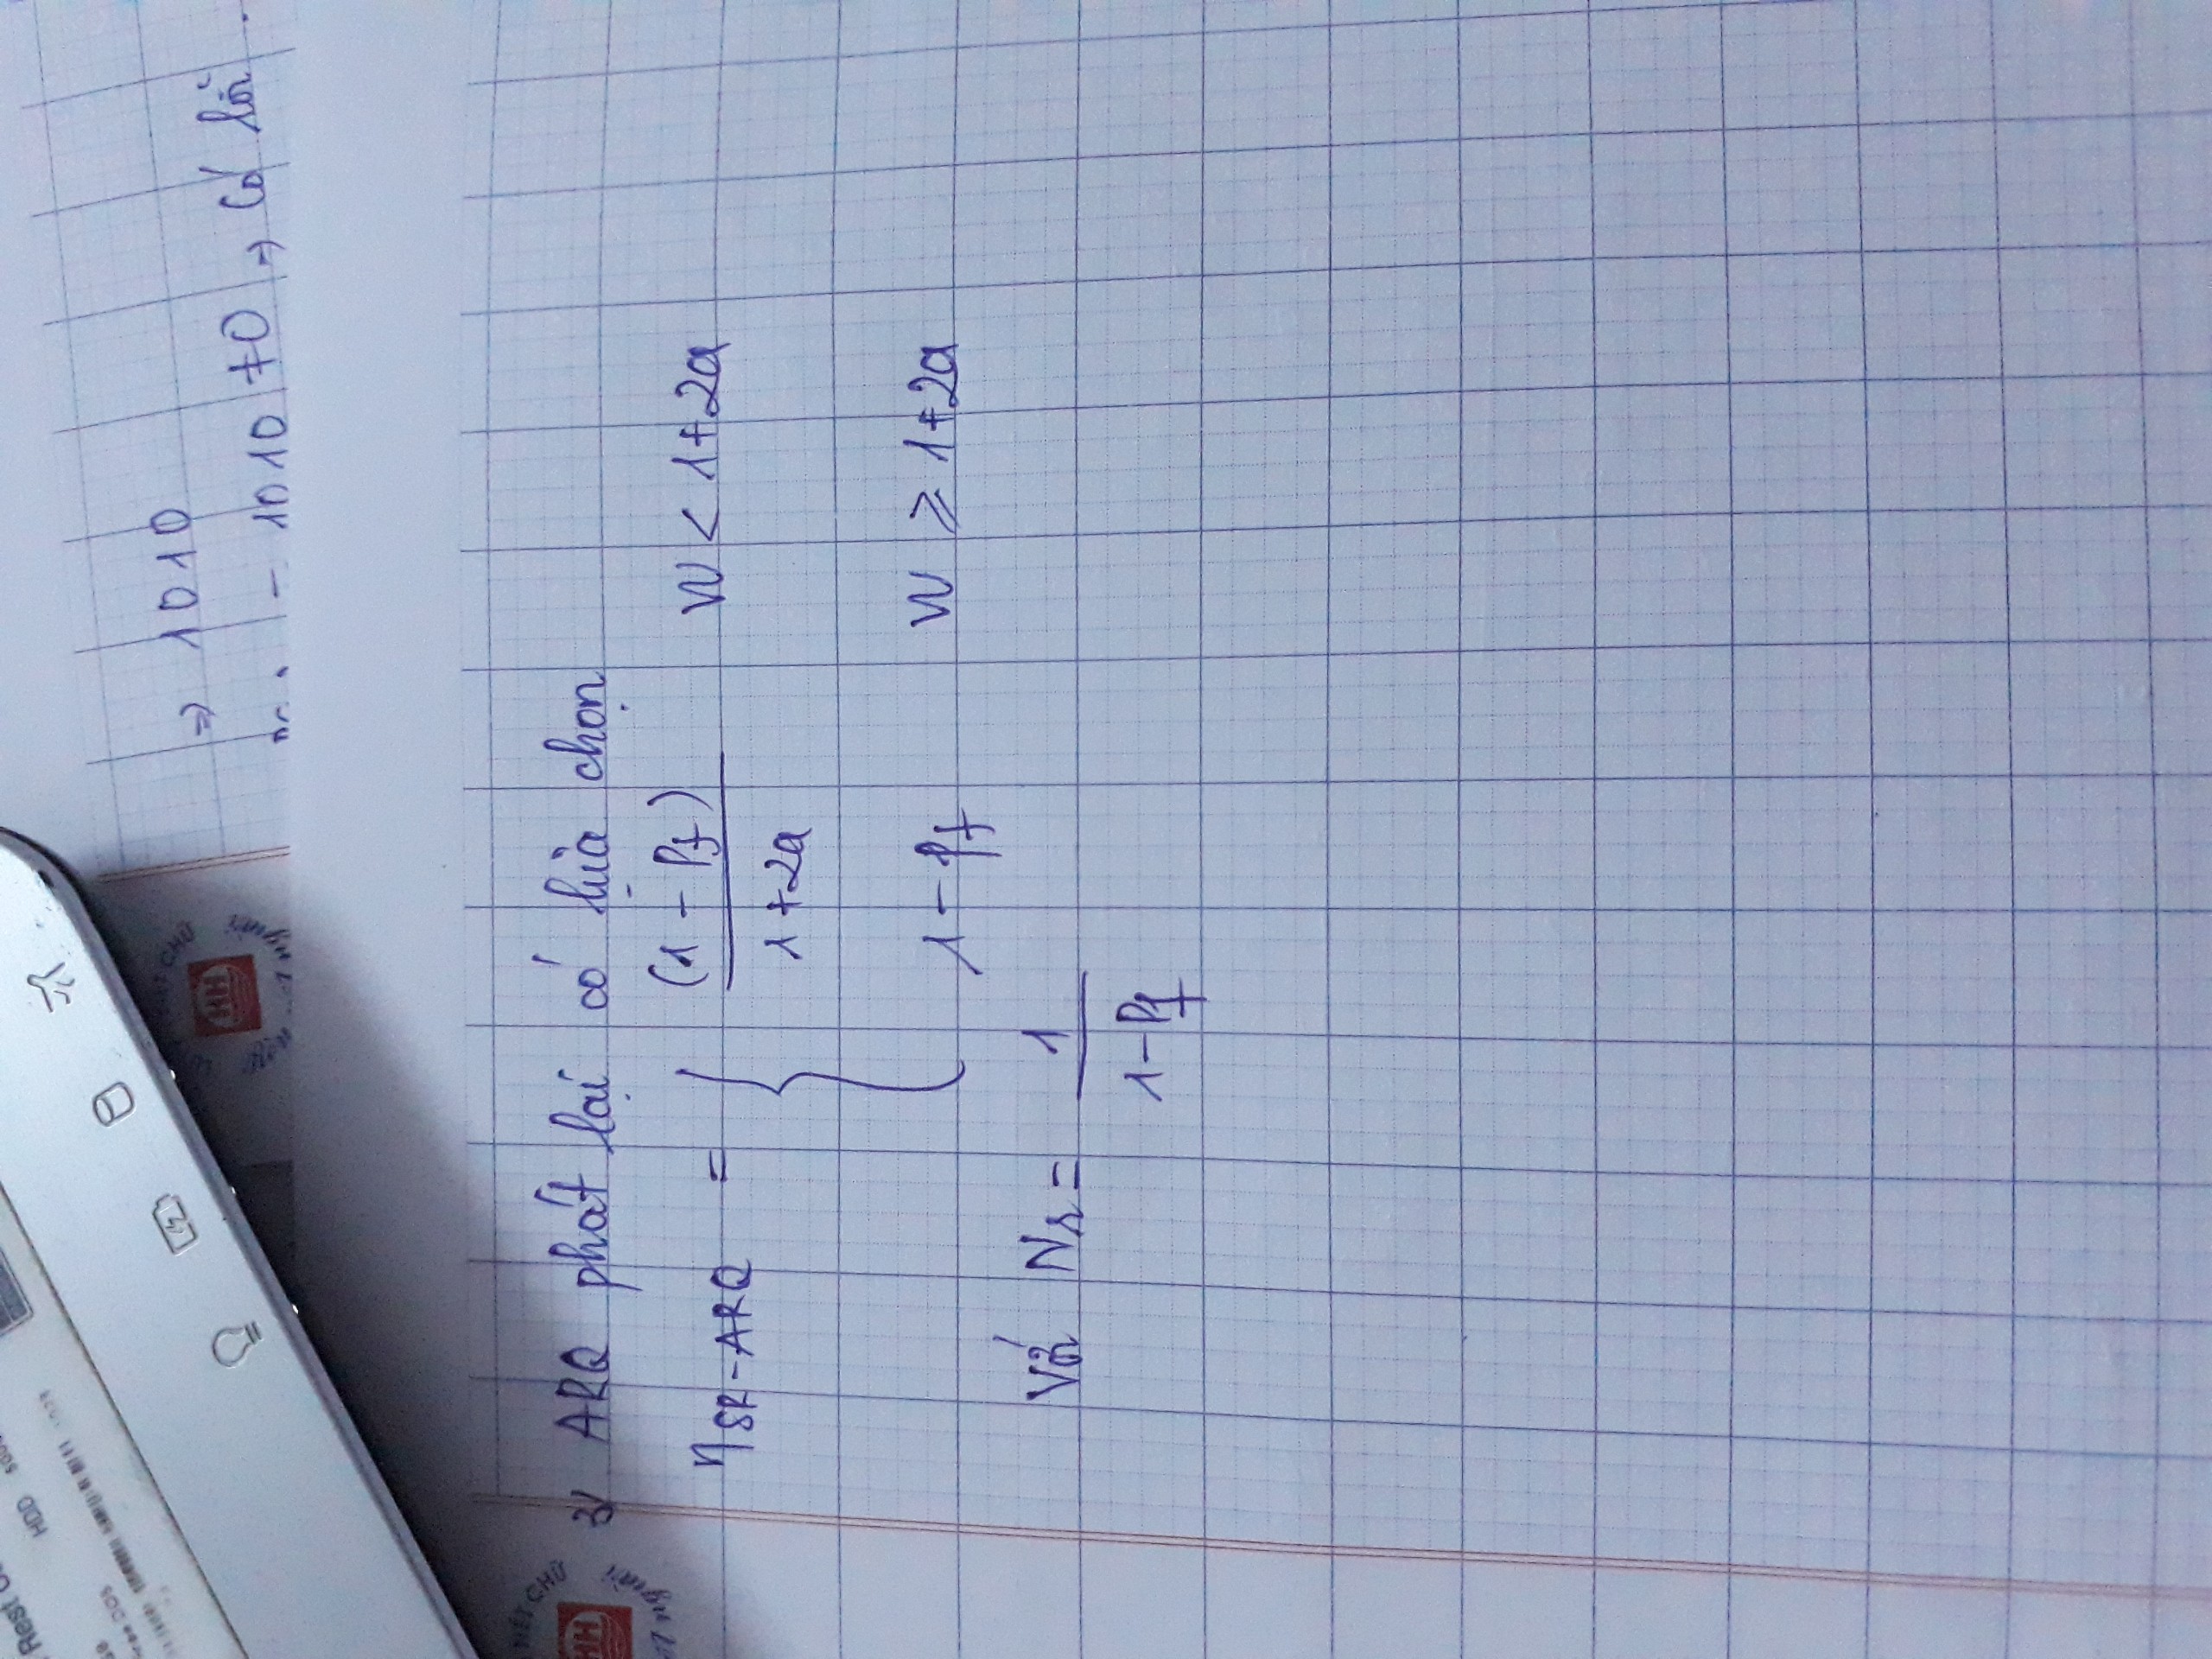 Rest
HDD
Free DOS
⇒ 1010
- 1010 ≠0 → Có lỗi.
HH
NÉT CHỮ
HH
3/ ARQ phát lại có lựa chọn
η_SR-ARQ = { (1 - Pf) / (1+2a) W < 1+2a
1 - Pf W ≥ 1+2a
Với Nr = 1 / (1-Pf)